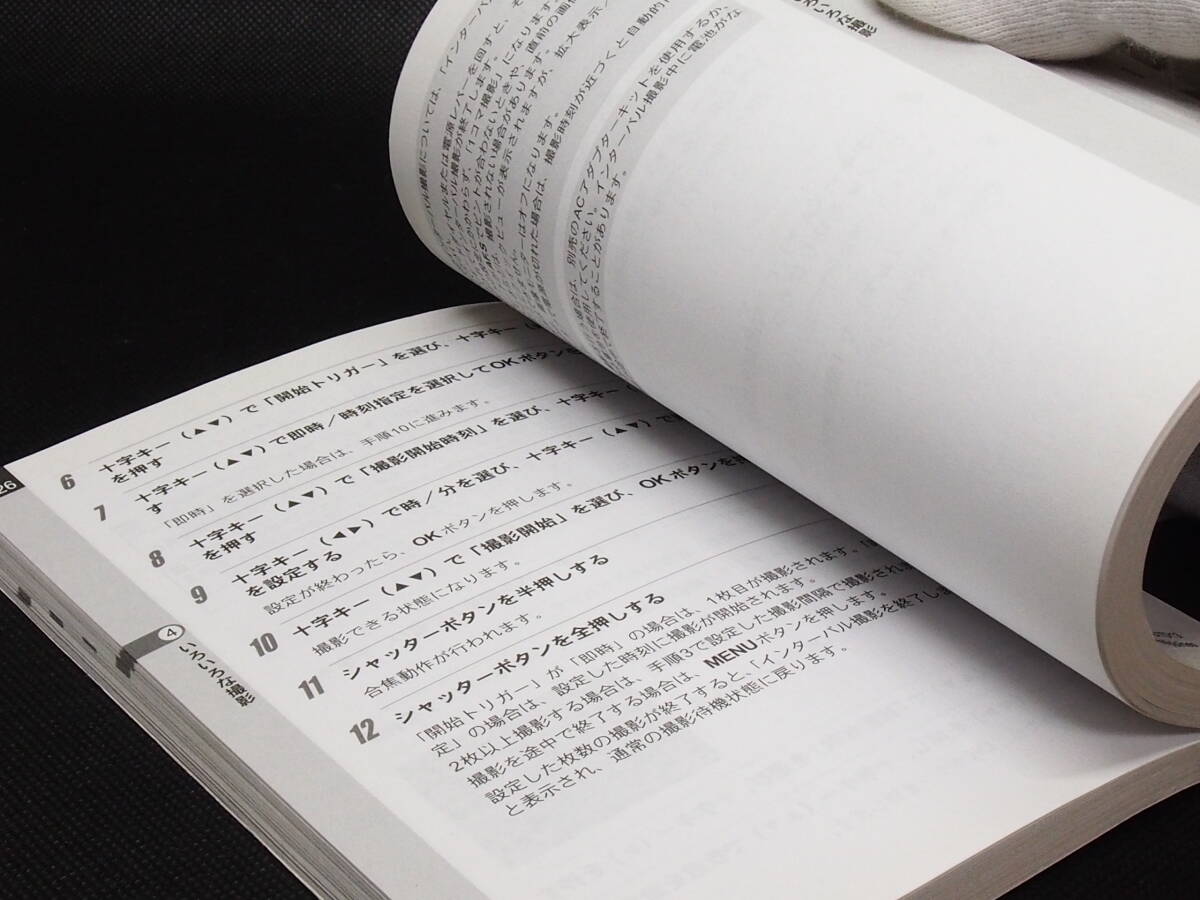 26
6 十字キー（▲▼）で「開始トリガー」を選び、十字キー（
を押す
7 十字キー（▲▼）で即時／時刻指定を選択してOKボタンを
す
「即時」を選択した場合は、手順10に進みます。
8 十字キー（▲▼）で「撮影開始時刻」を選び、十字キー（
を押す
9 十字キー（◀▶）で時／分を選び、十字キー（▲▼）で
を設定する
設定が終わったら、OKボタンを押します。
10 十字キー（▲▼）で「撮影開始」を選び、OKボタンを押
撮影できる状態になります。
11 シャッターボタンを半押しする
合焦動作が行われます。
12 シャッターボタンを全押しする
「開始トリガー」が「即時」の場合は、1枚目が撮影されます。「
定」の場合は、設定した時刻に撮影が開始されます。
2枚以上撮影する場合は、手順3で設定した撮影間隔で撮影され
撮影を途中で終了する場合は、MENUボタンを押します。
設定した枚数の撮影が終了すると、「インターバル撮影を終了しま
と表示され、通常の撮影待機状態に戻ります。
4 いろいろな撮影
バル撮影については、「インターバル
ダイヤルまたは電源レバーを回すと、そ
インターバル撮影が終了します。
にかかわらず、「1コマ撮影」になります
でピントが合わないときや、直前の画
撮影されない場合があります。
ックビューが表示されますが、拡大表示／
ません。
モニターはオフになります。
電源が切れた場合は、撮影時刻が近づくと自動的
場合は、別売のACアダプターキットを使用するか、
使用してください。インターバル撮影中に電池がな
終了することがあります。
いろいろな撮影